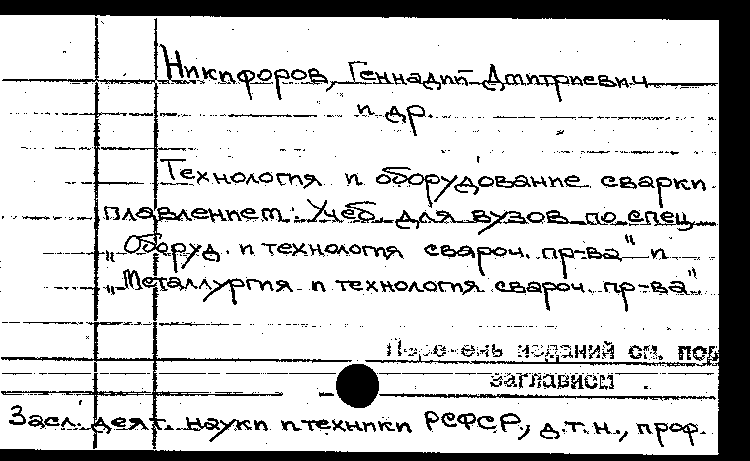 Никифоров, Геннадий Дмитриевич
и др.
Технология и оборудование сварки
плавлением: Учеб. для вузов по спец.
„Оборуд. и технология свароч. пр-ва" и
„Металлургия и технология свароч. пр-ва"
Перечень изданий см. под
заглавием
Засл. деят. науки и техники РСФСР, д.т.н., проф.